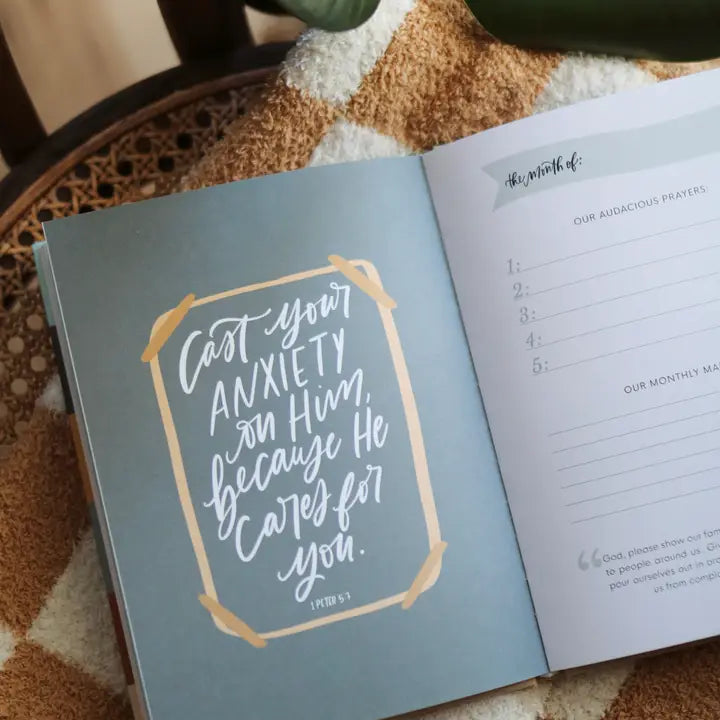 Cast your
ANXIETY
on Him,
because He
Cares for
you.
1 PETER 5:7
the month of:
OUR AUDACIOUS PRAYERS:
1:
2:
3:
4:
5:
OUR MONTHLY
“God, please show our
to people around us.
pour ourselves out in
us from